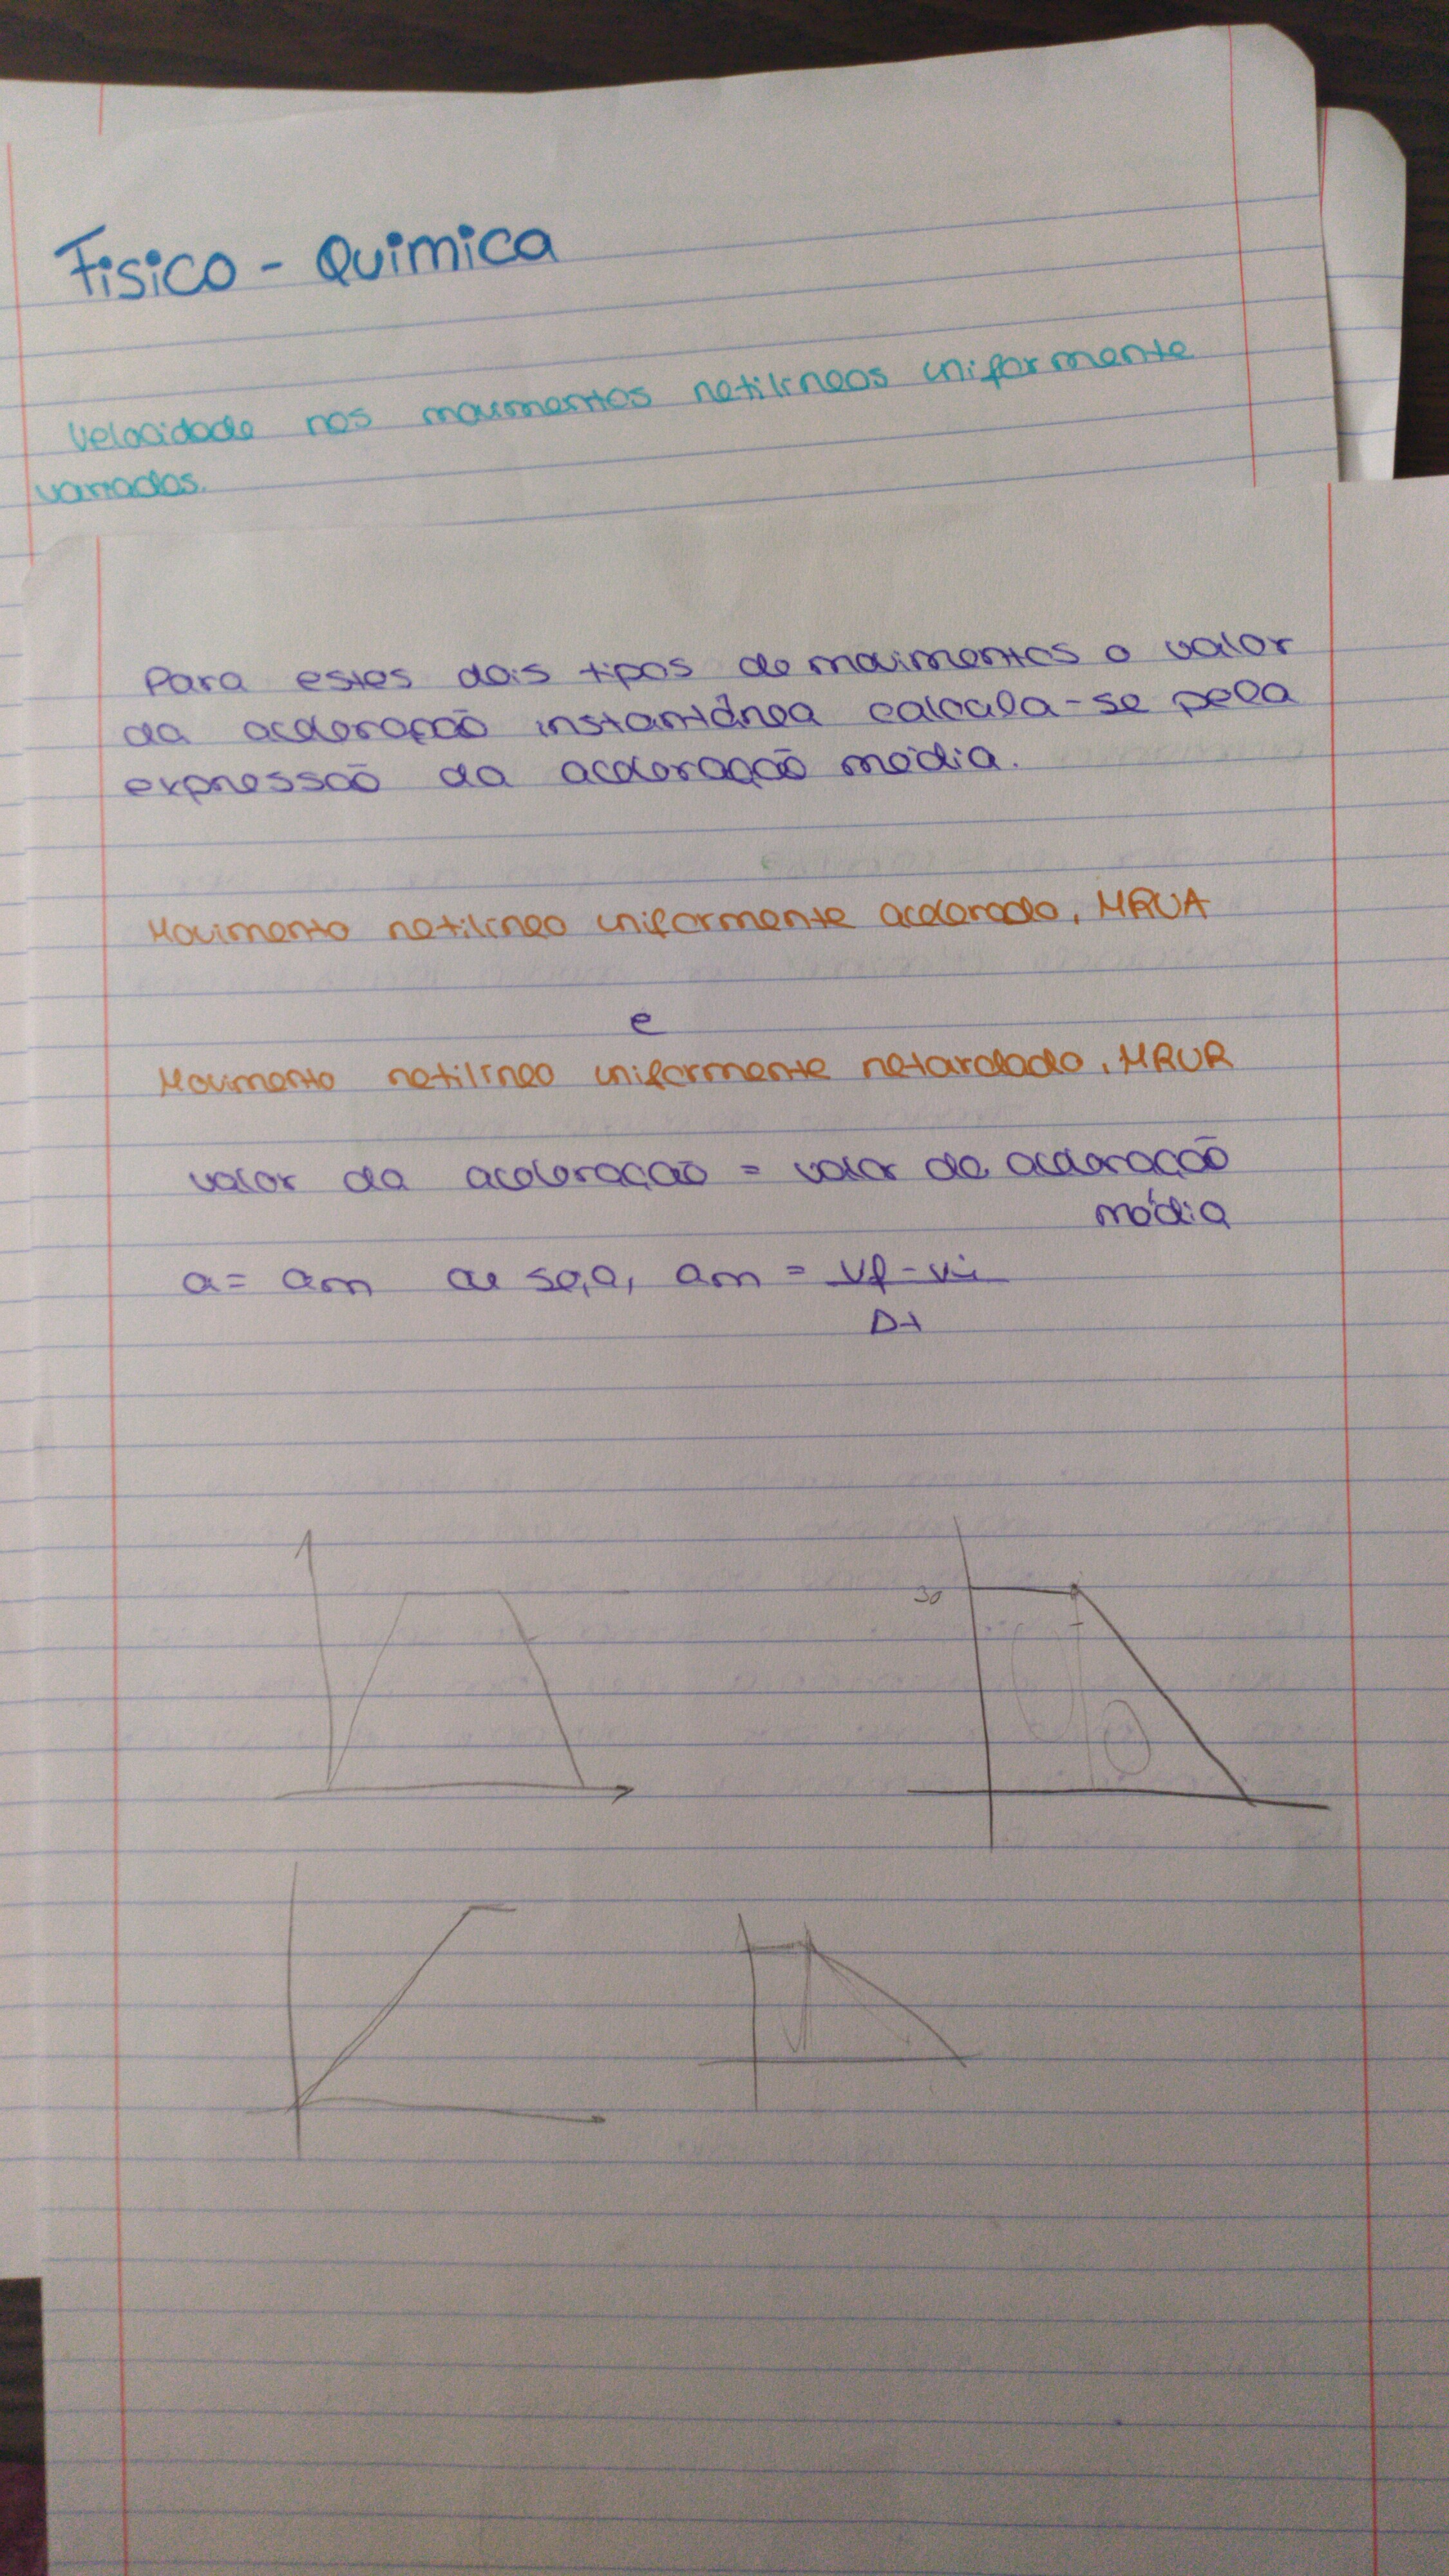 Fisico - Quimica
Velocidade nos movimentos retilíneos uniformemente
variados.
Para estes dois tipos de movimentos o valor
da aceleração instantânea calcula-se pela
expressão da aceleração média.
Movimento retilíneo uniformemente acelerado, MRUA
e
Movimento retilíneo uniformemente retardado, MRUR
valor da aceleração = valor da aceleração
média
a = am ou seja, am = vf - vi
Δt
30